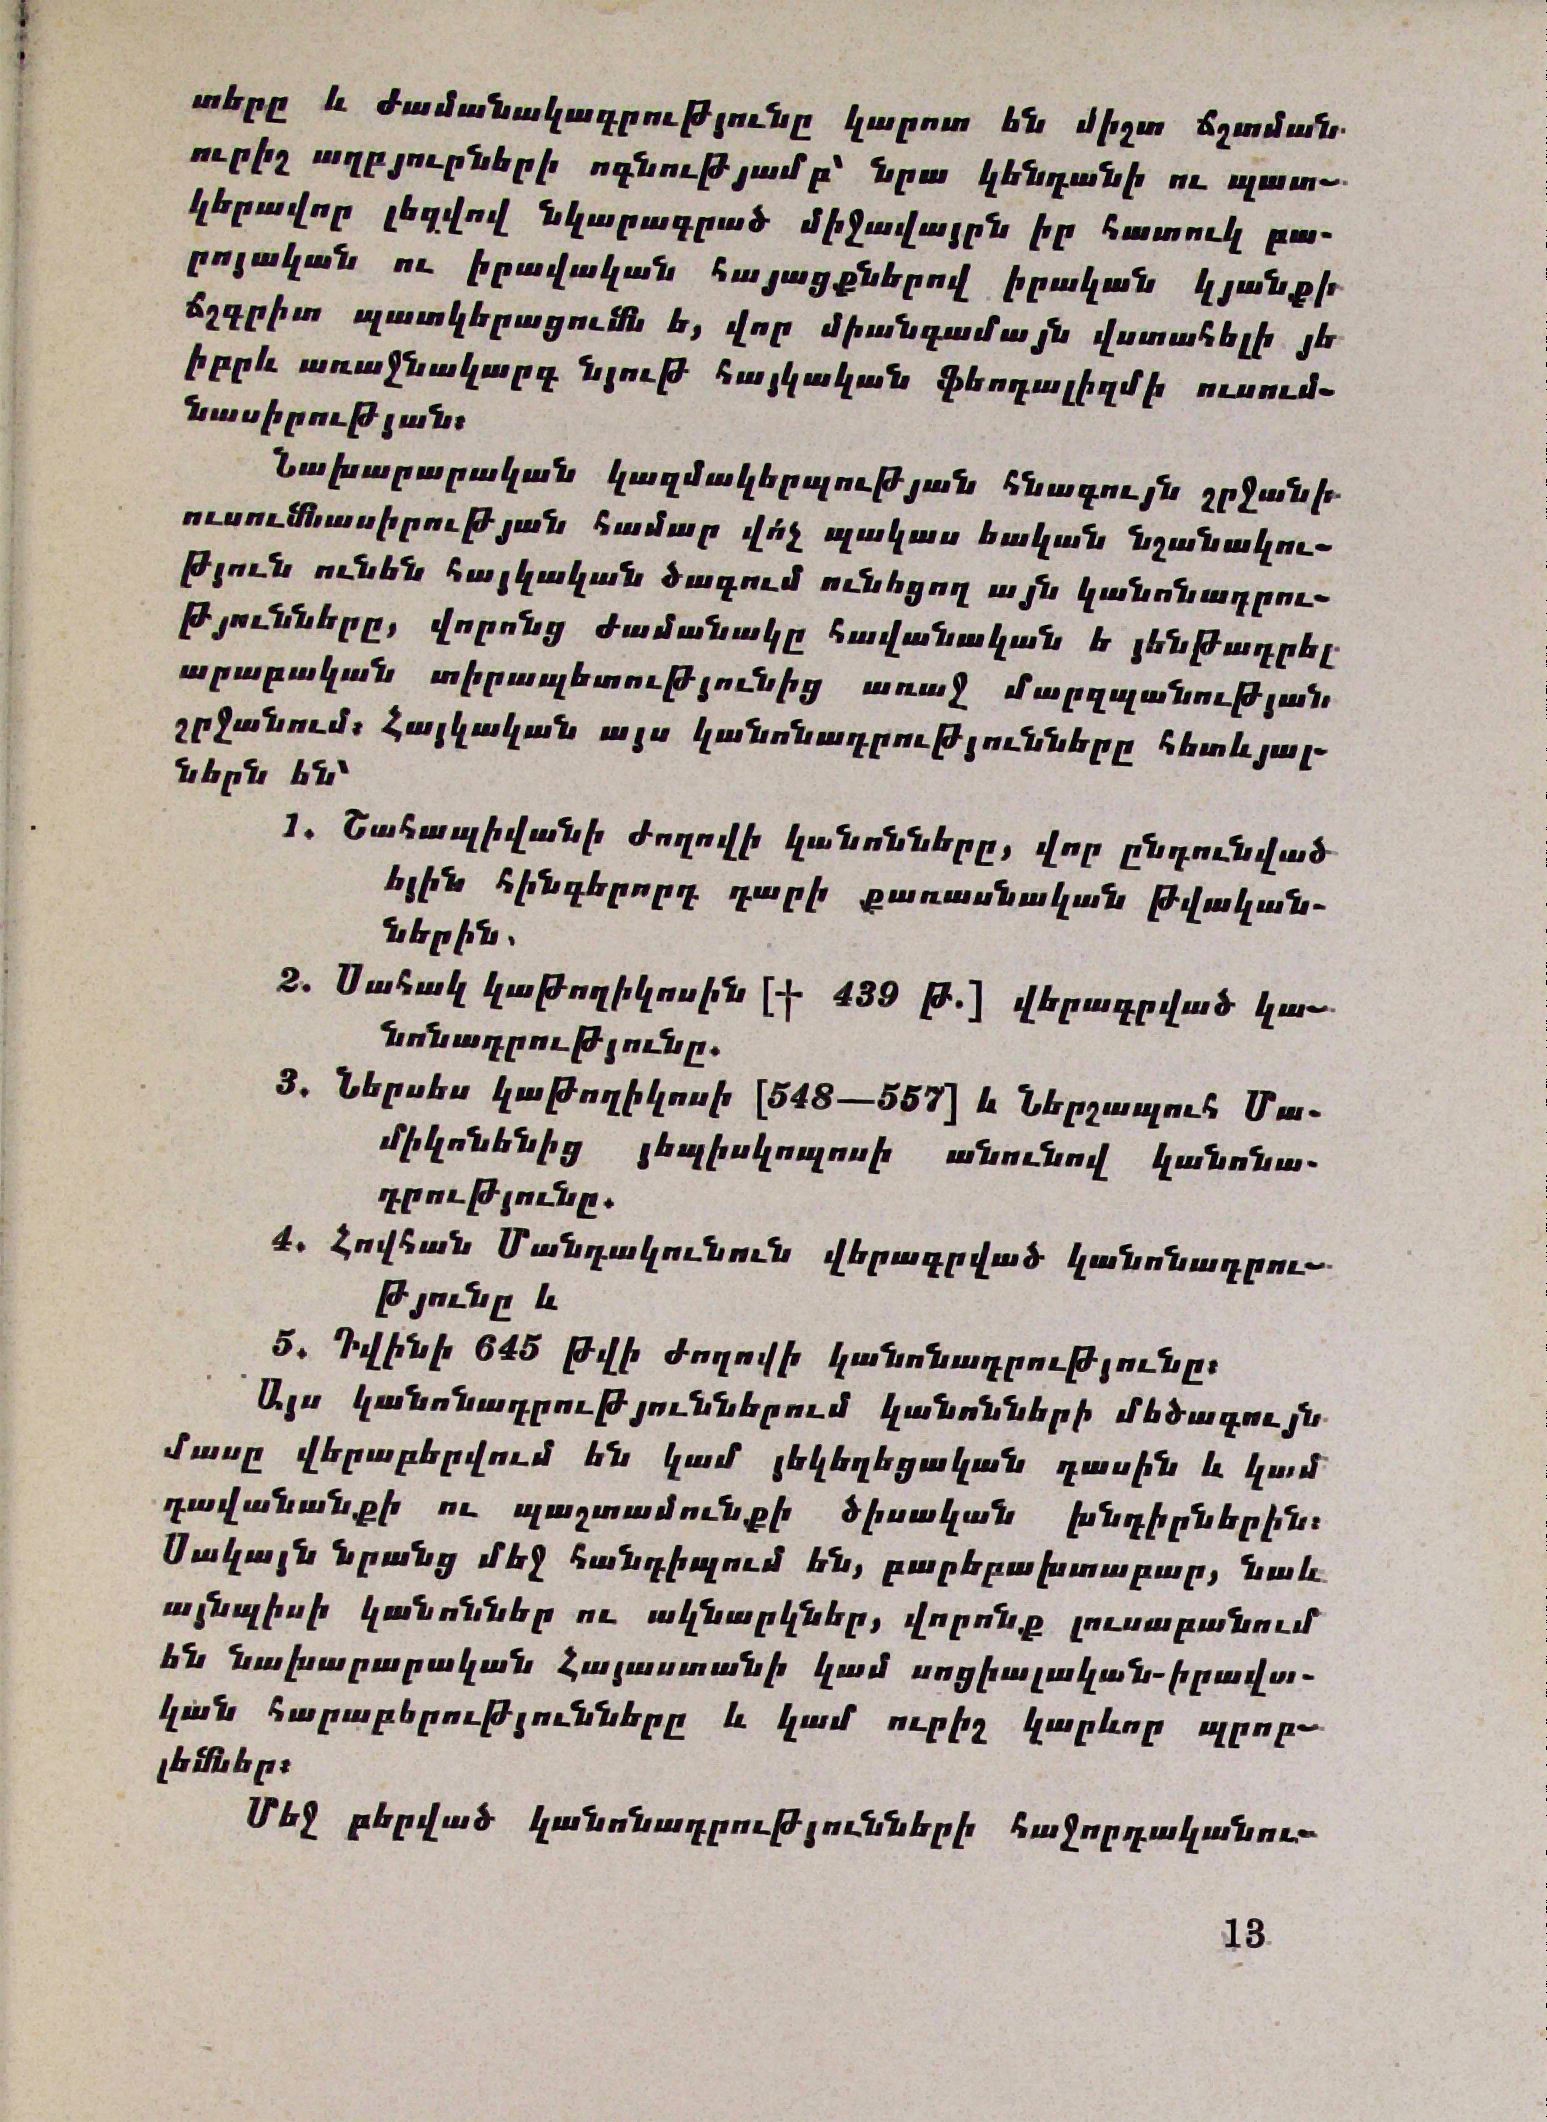 տերը և ժամանակագրությունը կարոտ են միշտ ճշտման
ուրիշ աղբյուրների ոգնությամբ՝ նրա կենդանի ու պատ-
կերավոր լեզվով նկարագրած միջավայրն իր հատուկ բա-
րոյական ու իրավական հայացքներով իրական կյանքի
ճշգրիտ պատկերացումն ե, վոր միանգամայն վստահելի յե
իբրև առաջնակարգ նյութ հայկական ֆեոդալիզմի ուսում-
նասիրության։
Նախարարական կազմակերպության հնագույն շրջանի
ուսումնասիրության համար վո՛չ պակաս եական նշանակու-
թյուն ունեն հայկական ծագում ունեցող այն կանոնադրու-
թյունները, վորոնց ժամանակը հավանական ե յենթադրել
արաբական տիրապետությունից առաջ մարզպանության
շրջանում։ Հայկական այս կանոնադրությունները հետևյալ-
ներն են՝
1. Շահապիվանի ժողովի կանոնները, վոր ընդունված
եյին հինգերորդ դարի քառասնական թվական-
ներին.
2. Սահակ կաթողիկոսին [† 439 թ.] վերագրված կա-
նոնադրությունը.
3. Ներսես կաթողիկոսի [548—557] և Ներշապուհ Մա-
միկոնենից յեպիսկոպոսի անունով կանոնա-
դրությունը.
4. Հովհան Մանդակունուն վերագրված կանոնադրու-
թյունը և
5. Դվինի 645 թվի ժողովի կանոնադրությունը։
Այս կանոնադրություններում կանոնների մեծագույն
մասը վերաբերվում են կամ յեկեղեցական դասին և կամ
դավանանքի ու պաշտամունքի ծիսական խնդիրներին։
Սակայն նրանց մեջ հանդիպում են, բարեբախտաբար, նաև
այնպիսի կանոններ ու ակնարկներ, վորոնք լուսաբանում
են նախարարական Հայաստանի կամ սոցիալական-իրավա-
կան հարաբերությունները և կամ ուրիշ կարևոր պրոբ-
լեմներ։
Մեջ բերված կանոնադրությունների հաջորդականու-
13